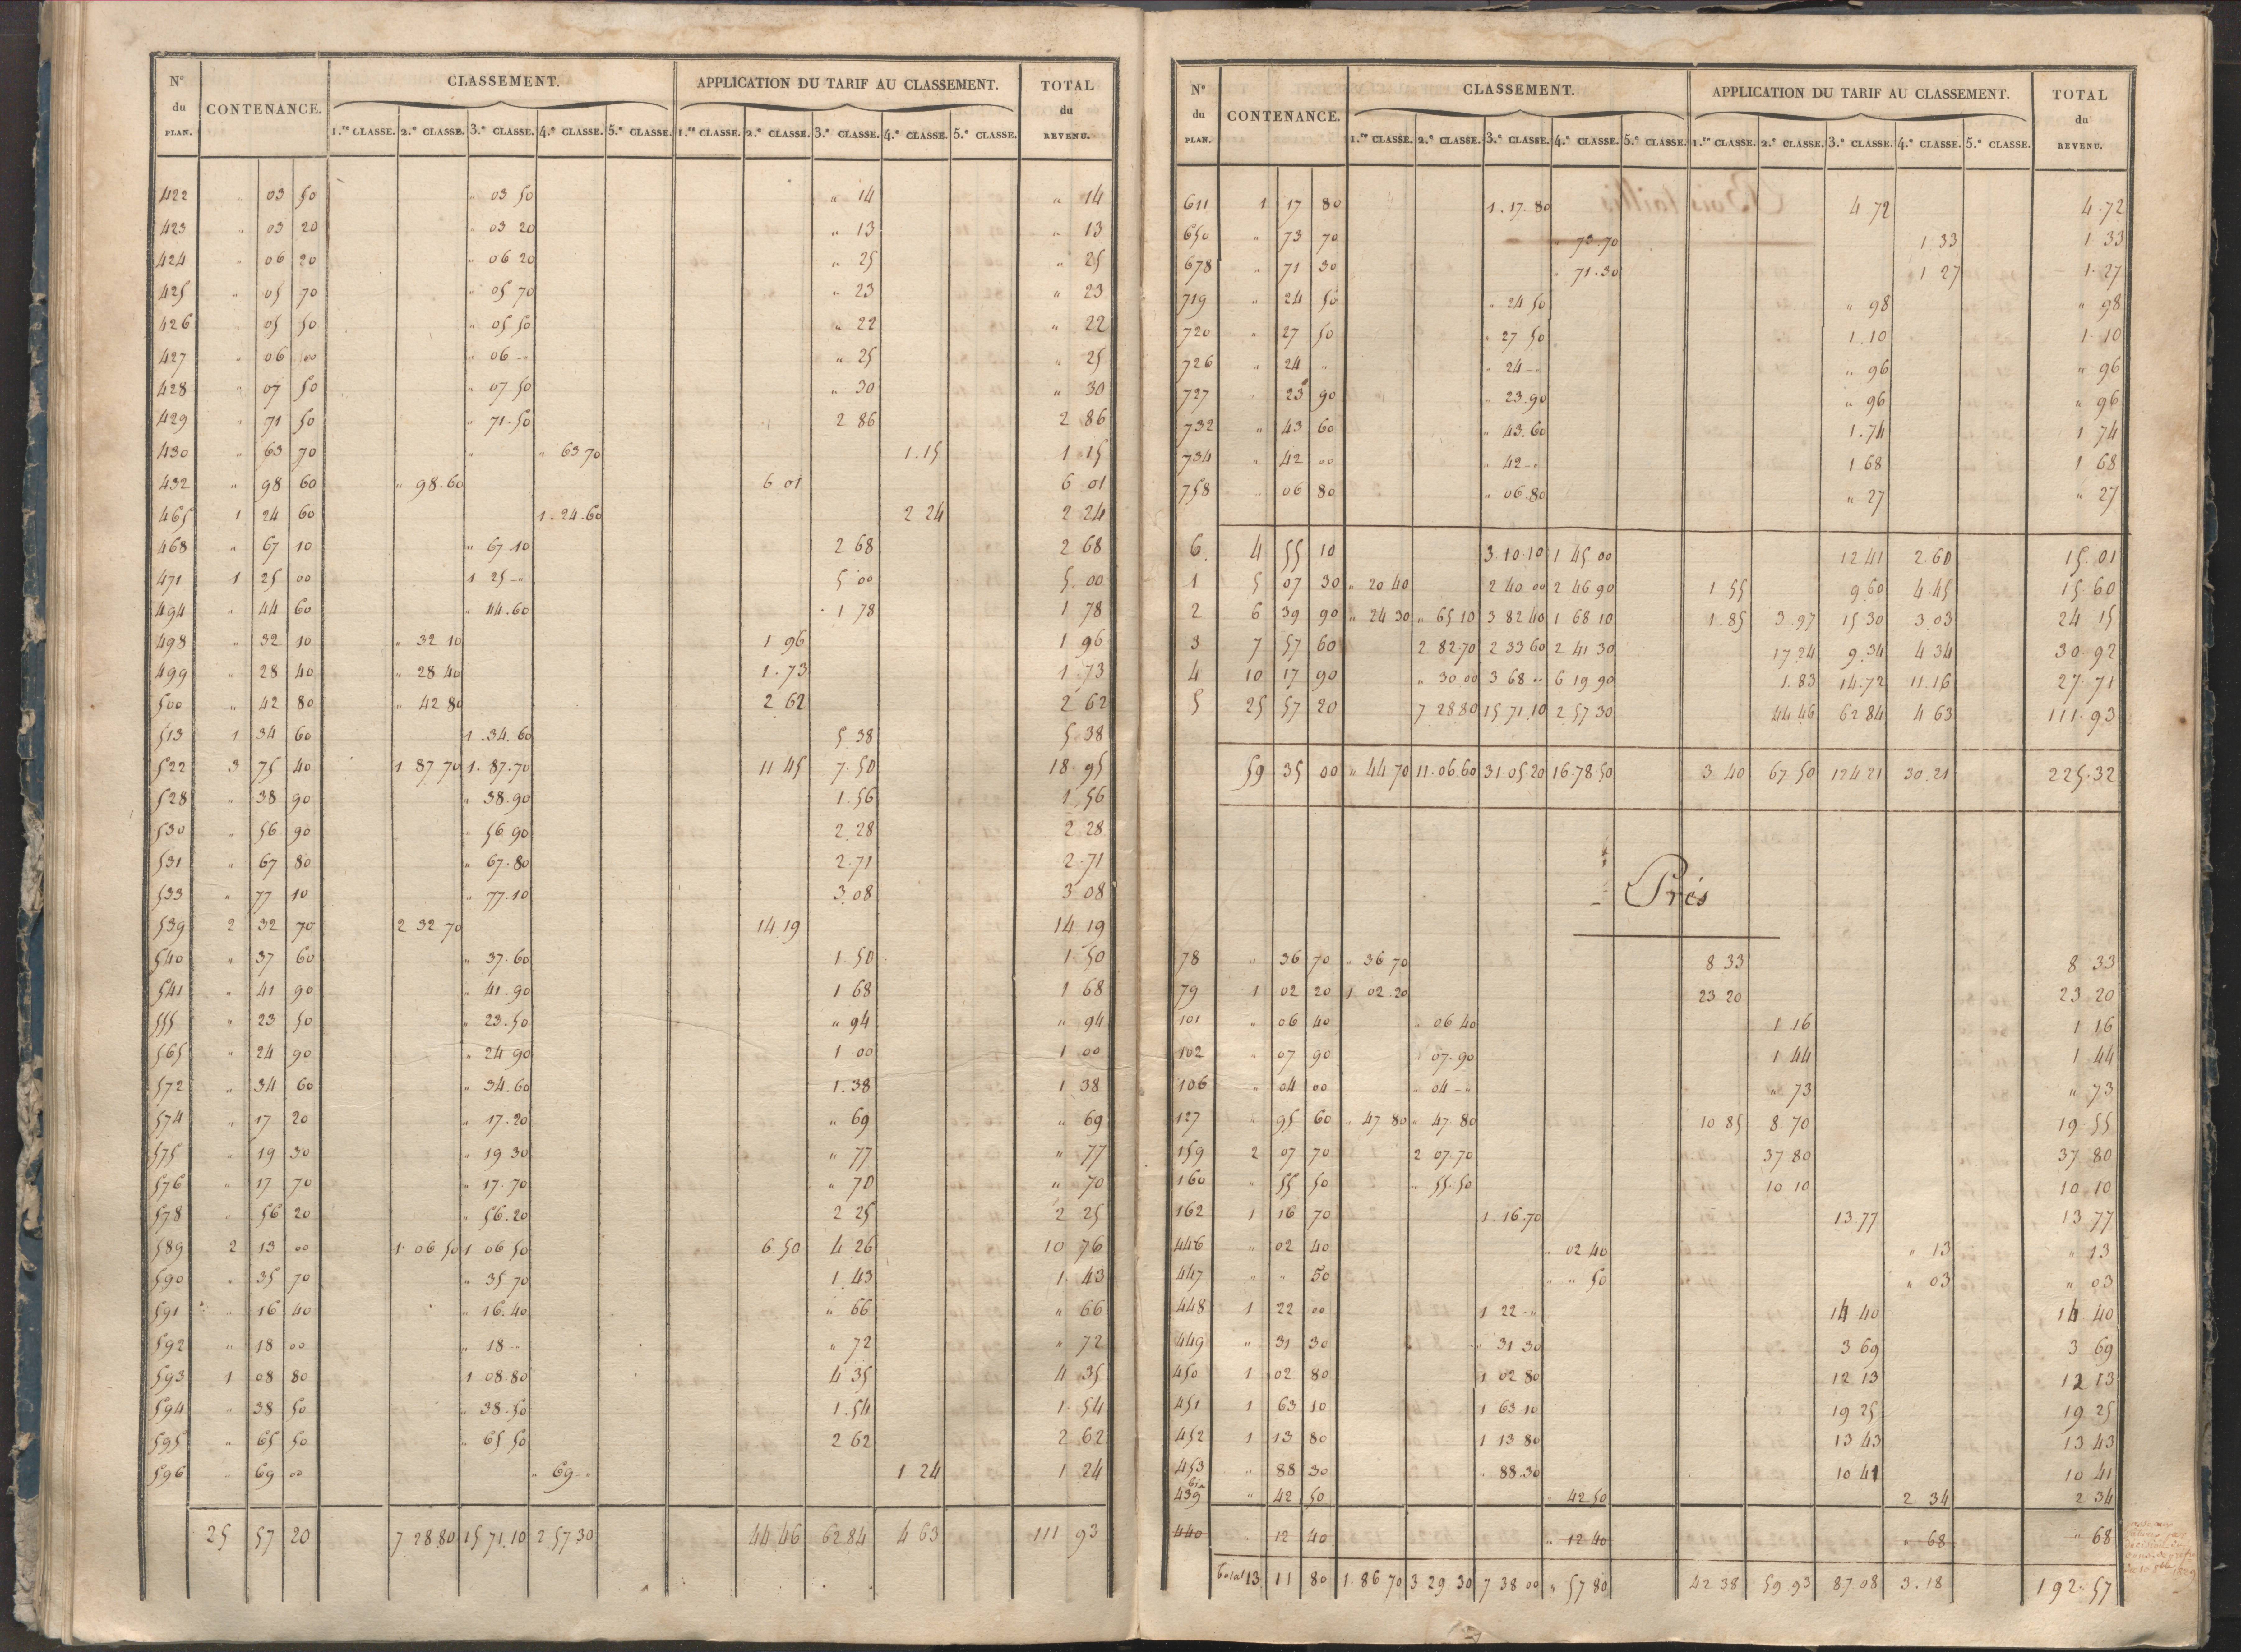 N° du PLAN. CONTENANCE. CLASSEMENT. APPLICATION DU TARIF AU CLASSEMENT. TOTAL du REVENU.
1.re CLASSE. 2.e CLASSE. 3.e CLASSE. 4.e CLASSE. 5.e CLASSE. 1.re CLASSE. 2.e CLASSE. 3.e CLASSE. 4.e CLASSE. 5.e CLASSE.
422 03 50 " 03 50 " 14 " 14
423 " 03 20 " 03 20 " 13 " 13
424 " 06 20 " 06 20 " 25 " 25
425 " 05 70 " 05 70 " 23 " 23
426 " 05 50 " 05 50 " 22 " 22
427 " 06 00 " 06 - " " 25 " 25
428 " 07 50 " 07.50 " 30 " 30
429 " 71 50 " 71.50 2 86 2 86
430 " 63 70 " " 63 70 1.15 1 15
432 " 98 60 " 98.60 6 01 6 01
465 1 24 60 1.24.60 2 24 2 24
468 " 67 10 " 67.10 2 68 2 68
471 1 25 00 1 25 - " 5 00 5 00
494 " 44 60 " 44.60 1 78 1 78
498 " 32 10 " 32 10 1 96 1 96
499 " 28 40 " 28 40 1.73 1 73
500 " 42 80 " 42 80 2 62 2 62
513 1 34 60 1.34.60 5 38 5 38
522 3 75 40 1 87 70 1.87.70 11 45 7.50 18 95
528 " 38 90 " 38.90 1.56 1 56
530 " 56 90 " 56 90 2 28 2 28
531 " 67 80 " 67.80 2.71 2.71
533 " 77 10 " 77.10 3 08 3 08
539 2 32 70 2 32 70 14 19 14 19
540 " 37 60 " 37.60 1 50 1 50
541 " 41 90 " 41.90 1 68 1 68
555 " 23 50 " 23.50 " 94 " 94
565 " 24 90 " 24 90 1 00 1 00
572 " 34 60 " 34.60 1.38 1 38
574 " 17 20 " 17.20 " 69 " 69
575 " 19 30 " 19 30 " 77 " 77
576 " 17 70 " 17.70 " 70 " 70
578 " 56 20 " 56.20 2 25 2 25
589 2 13 00 1 06 50 1 06 50 6.50 4 26 10 76
590 " 35 70 " 35 70 1.43 1 43
591 " 16 40 " 16.40 " 66 " 66
592 " 18 00 " 18 - " 72 " 72
593 1 08 80 1 08.80 4 35 4 35
594 " 38 50 " 38.50 1.54 1 54
595 " 65 50 " 65 50 2 62 2 62
596 " 69 00 " 69 - " 1 24 1 24
25 57 20 7 28 80 15 71 10 2 57 30 44 46 62 84 4 63 111 93
N° du PLAN. CONTENANCE. CLASSEMENT. APPLICATION DU TARIF AU CLASSEMENT. TOTAL du REVENU.
1.re CLASSE. 2.e CLASSE. 3.e CLASSE. 4.e CLASSE. 5.e CLASSE. 1.re CLASSE. 2.e CLASSE. 3.e CLASSE. 4.e CLASSE. 5.e CLASSE.
611 1 17 80 1.17.80 4 72 4.72
650 " 73 70 " 73.70 1 33 1 33
678 " 71 30 " 71.30 1 27 1.27
719 " 24 50 " 24 50 " 98 " 98
720 " 27 50 " 27 50 1.10 1.10
726 " 24 " " 24 - " " 96 " 96
727 " 23 90 " 23.90 " 96 " 96
732 " 43 60 " 43.60 1.74 1 74
734 " 42 00 " 42 - " 1 68 1 68
758 " 06 80 " 06.80 " 27 " 27
6 4 55 10 3.10.10 1 45 00 12 41 2.60 15.01
1 5 07 30 " 20 40 2 40 00 2 46 90 1 55 9 60 4.45 15 60
2 6 39 90 " 24 30 " 65 10 3 82 40 1 68 10 1.85 3.97 15 30 3.03 24 15
3 7 57 60 2 82.70 2 33 60 2 41 30 17 24 9.34 4 34 30 92
4 10 17 90 " 30 00 3 68 " 6 19 90 1.83 14.72 11.16 27.71
5 25 57 20 7 28 80 15.71.10 2 57 30 44 46 62 84 4 63 111.93
59 35 00 " 44 70 11.06.60 31.05.20 16.78.50 3 40 67.50 124 21 30.21 225.32
Prés
78 " 36 70 " 36 70 8 33 8 33
79 1 02 20 1 02.20 23 20 23 20
101 " 06 40 " 06 40 1 16 1 16
102 " 07 90 " 07.90 1 44 1 44
106 " 04 00 " 04 - " " 73 " 73
127 " 95 60 " 47 80 " 47 80 10 85 8.70 19 55
159 2 07 70 2 07.70 37 80 37 80
160 " 55 50 " 55.50 10 10 10 10
162 1 16 70 1.16.70 13.77 13 77
446 " 02 40 " 02 40 " 13 " 13
447 " " 50 " " 50 " 03 " 03
448 1 22 00 1 22 - " 14 40 14 40
449 " 31 30 " 31 30 3 69 3 69
450 1 02 80 1 02 80 12 13 12 13
451 1 63 10 1 63 10 19 25 19 25
452 1 13 80 1 13 80 13 43 13 43
453 " 88 30 " 88.30 10 41 10 41
439 bis " 42 50 " 42 50 2 34 2 34
440 " 12 40 " 12 40 " 68 " 68
total 13 11 80 1.86 70 3.29 30 7 38 00 " 57 80 42 38 59.93 87.08 3.18 192.57